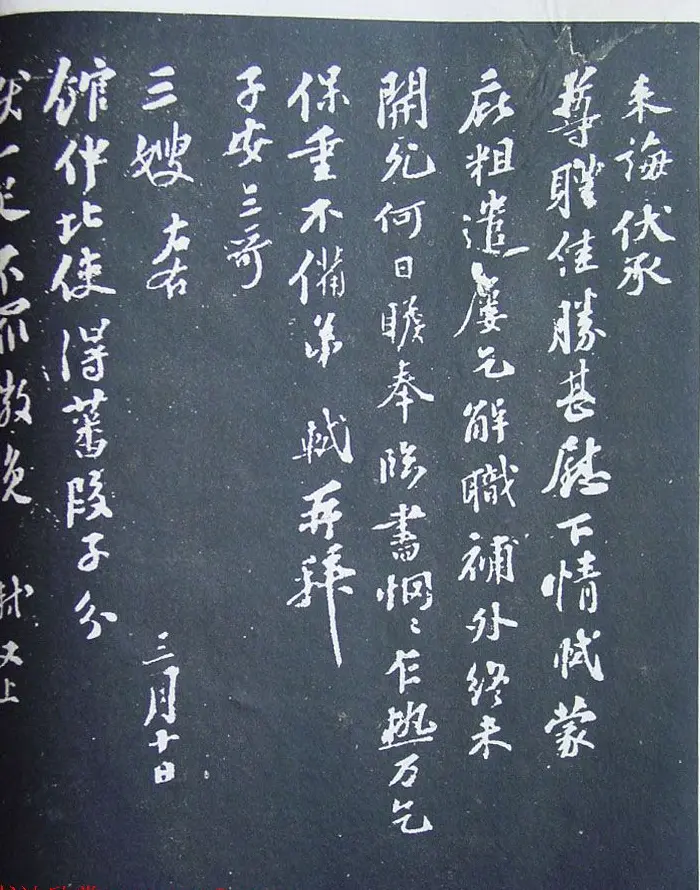 来誨伏承
尊體佳勝甚慰下情軾蒙
庇粗遣屢乞解職補外終未
開允何日瞻奉臨書惘惘乍熱万乞
保重不備弟軾再拜
子安三哥
三嫂左右 三月十日
館伴北使得蕃段子分
不罪散免 軾又上